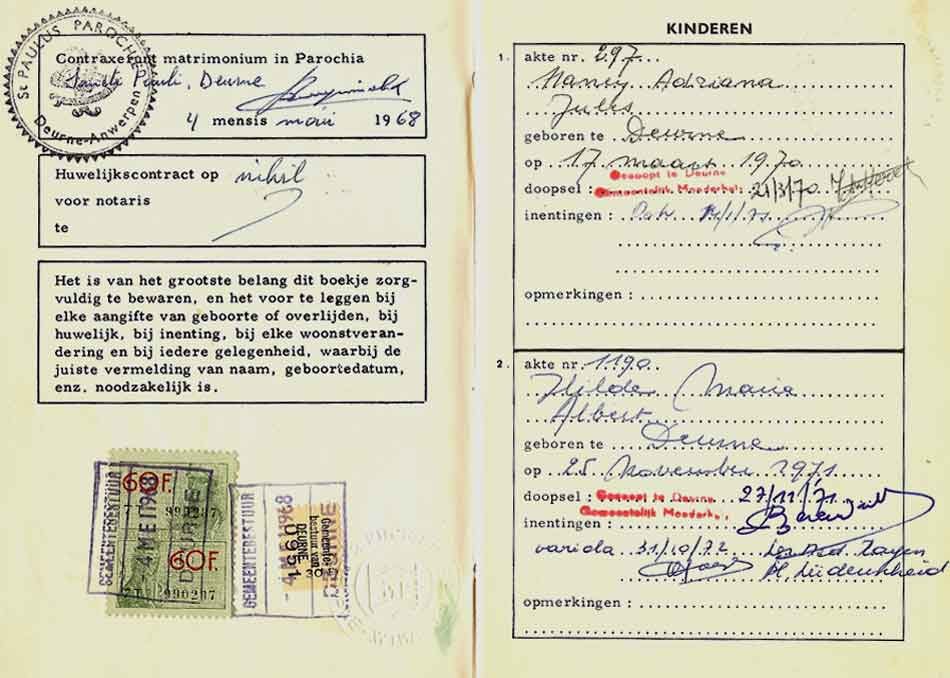 St PAULUS PAROCHIE
Deurne-Antwerpen
Contraxerunt matrimonium in Parochia
Sancti Pauli, Deurne
4 mensis mai 1968
Huwelijkscontract op nihil
voor notaris
te
Het is van het grootste belang dit boekje zorg-
vuldig te bewaren, en het voor te leggen bij
elke aangifte van geboorte of overlijden, bij
huwelijk, bij inenting, bij elke woonstveran-
dering en bij iedere gelegenheid, waarbij de
juiste vermelding van naam, geboortedatum,
enz. noodzakelijk is.
60F.
990207
60F.
990207
GEMEENTEBESTUUR
- 4 MEI 1968
DEURNE
GEMEENTEBESTUUR
- 4 MEI 1968
DEURNE
Gemeente-
bestuur van
DEURNE
0991
KINDEREN
1. akte nr. 297
Nancy Adriana
Jules
geboren te Deurne
op 17 maart 1970
doopsel : Gedoopt te Deurne 21/3/70
Gemeentelijk Moederhuis
inentingen :
opmerkingen :
2. akte nr. 1190
Hilde Maria
Albert
geboren te Deurne
op 25 November 1971
doopsel : Gedoopt te Deurne 27/11/71
Gemeentelijk Moederhuis
inentingen :
variola 31/10/72
Lüdenscheid
opmerkingen :